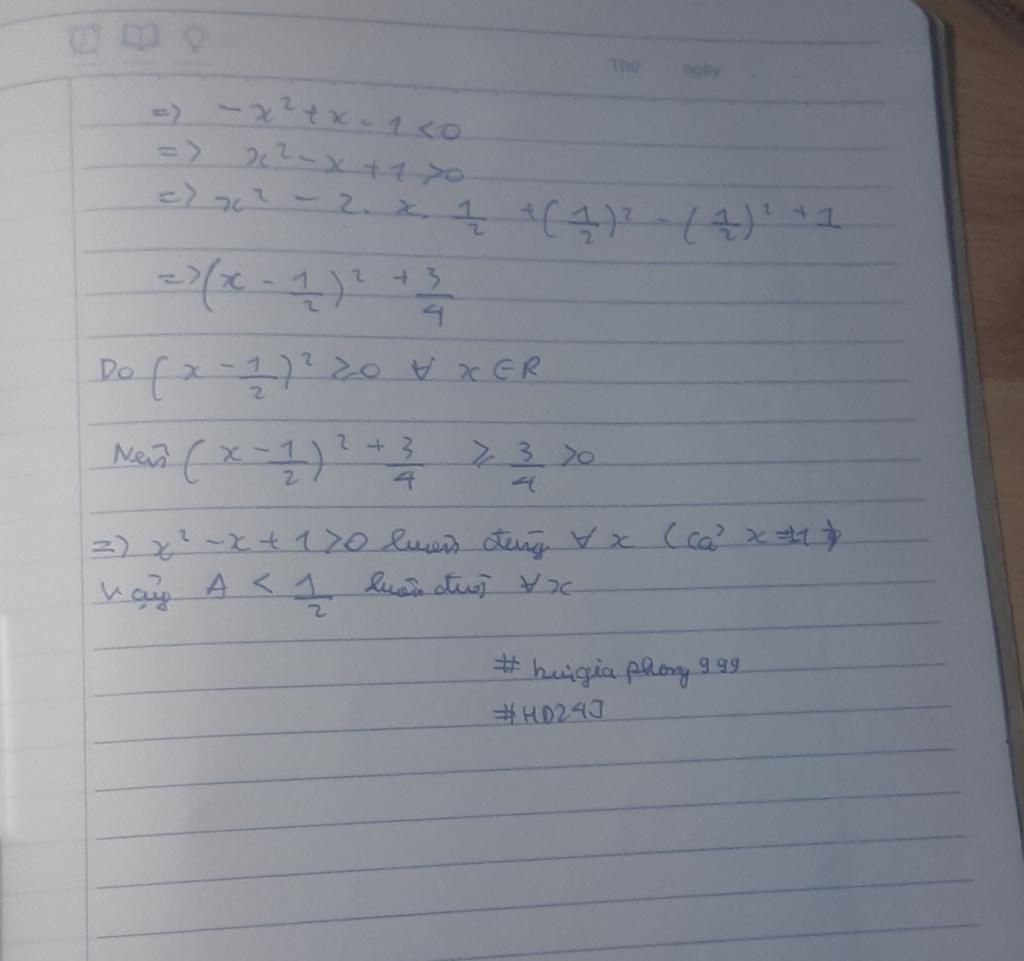 Thứ ngày
=> -x² + x - 1 < 0
=> x² - x + 1 > 0
=> x² - 2. x. 1/2 + (1/2)² - (1/2)² + 1
=> (x - 1/2)² + 3/4
Do (x - 1/2)² ≥ 0 ∀ x ∈ R
Nên (x - 1/2)² + 3/4 ≥ 3/4 > 0
=> x² - x + 1 > 0 luôn đúng ∀ x (cả x
Vậy A < 1/2 luôn đún ∀ x
# buigiaphong999